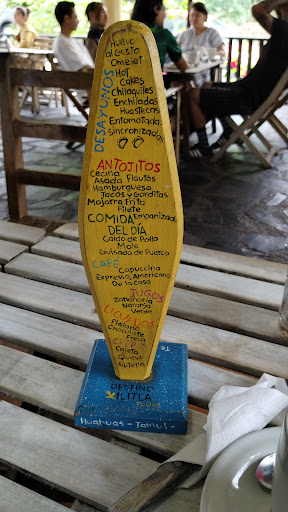 DESAYUNOS
Huevo
al Gusto
Omelet
Hot
Cakes
Chilaquiles
Enchiladas
Huastecas
Entomatadas
Sincronizadas
ANTOJITOS
Cecina
Asada Flautas
Hamburguesa
Tacos y Gorditas
Mojarra Frita
Filete
Empanizada
COMIDA
DEL DÍA
Caldo de Pollo
Mole
Guisado de Puerco
CAFE
Capuccina
Expresso, Americano
De la Casa
JUGOS
Zanahoria
Naranja
Verde
LICUADOS
Platano
Chocolate
Fresa
Cajeta
Queso
Nutella
DESTINO
XILITLA
TOURS
Huahuas - Tamul -